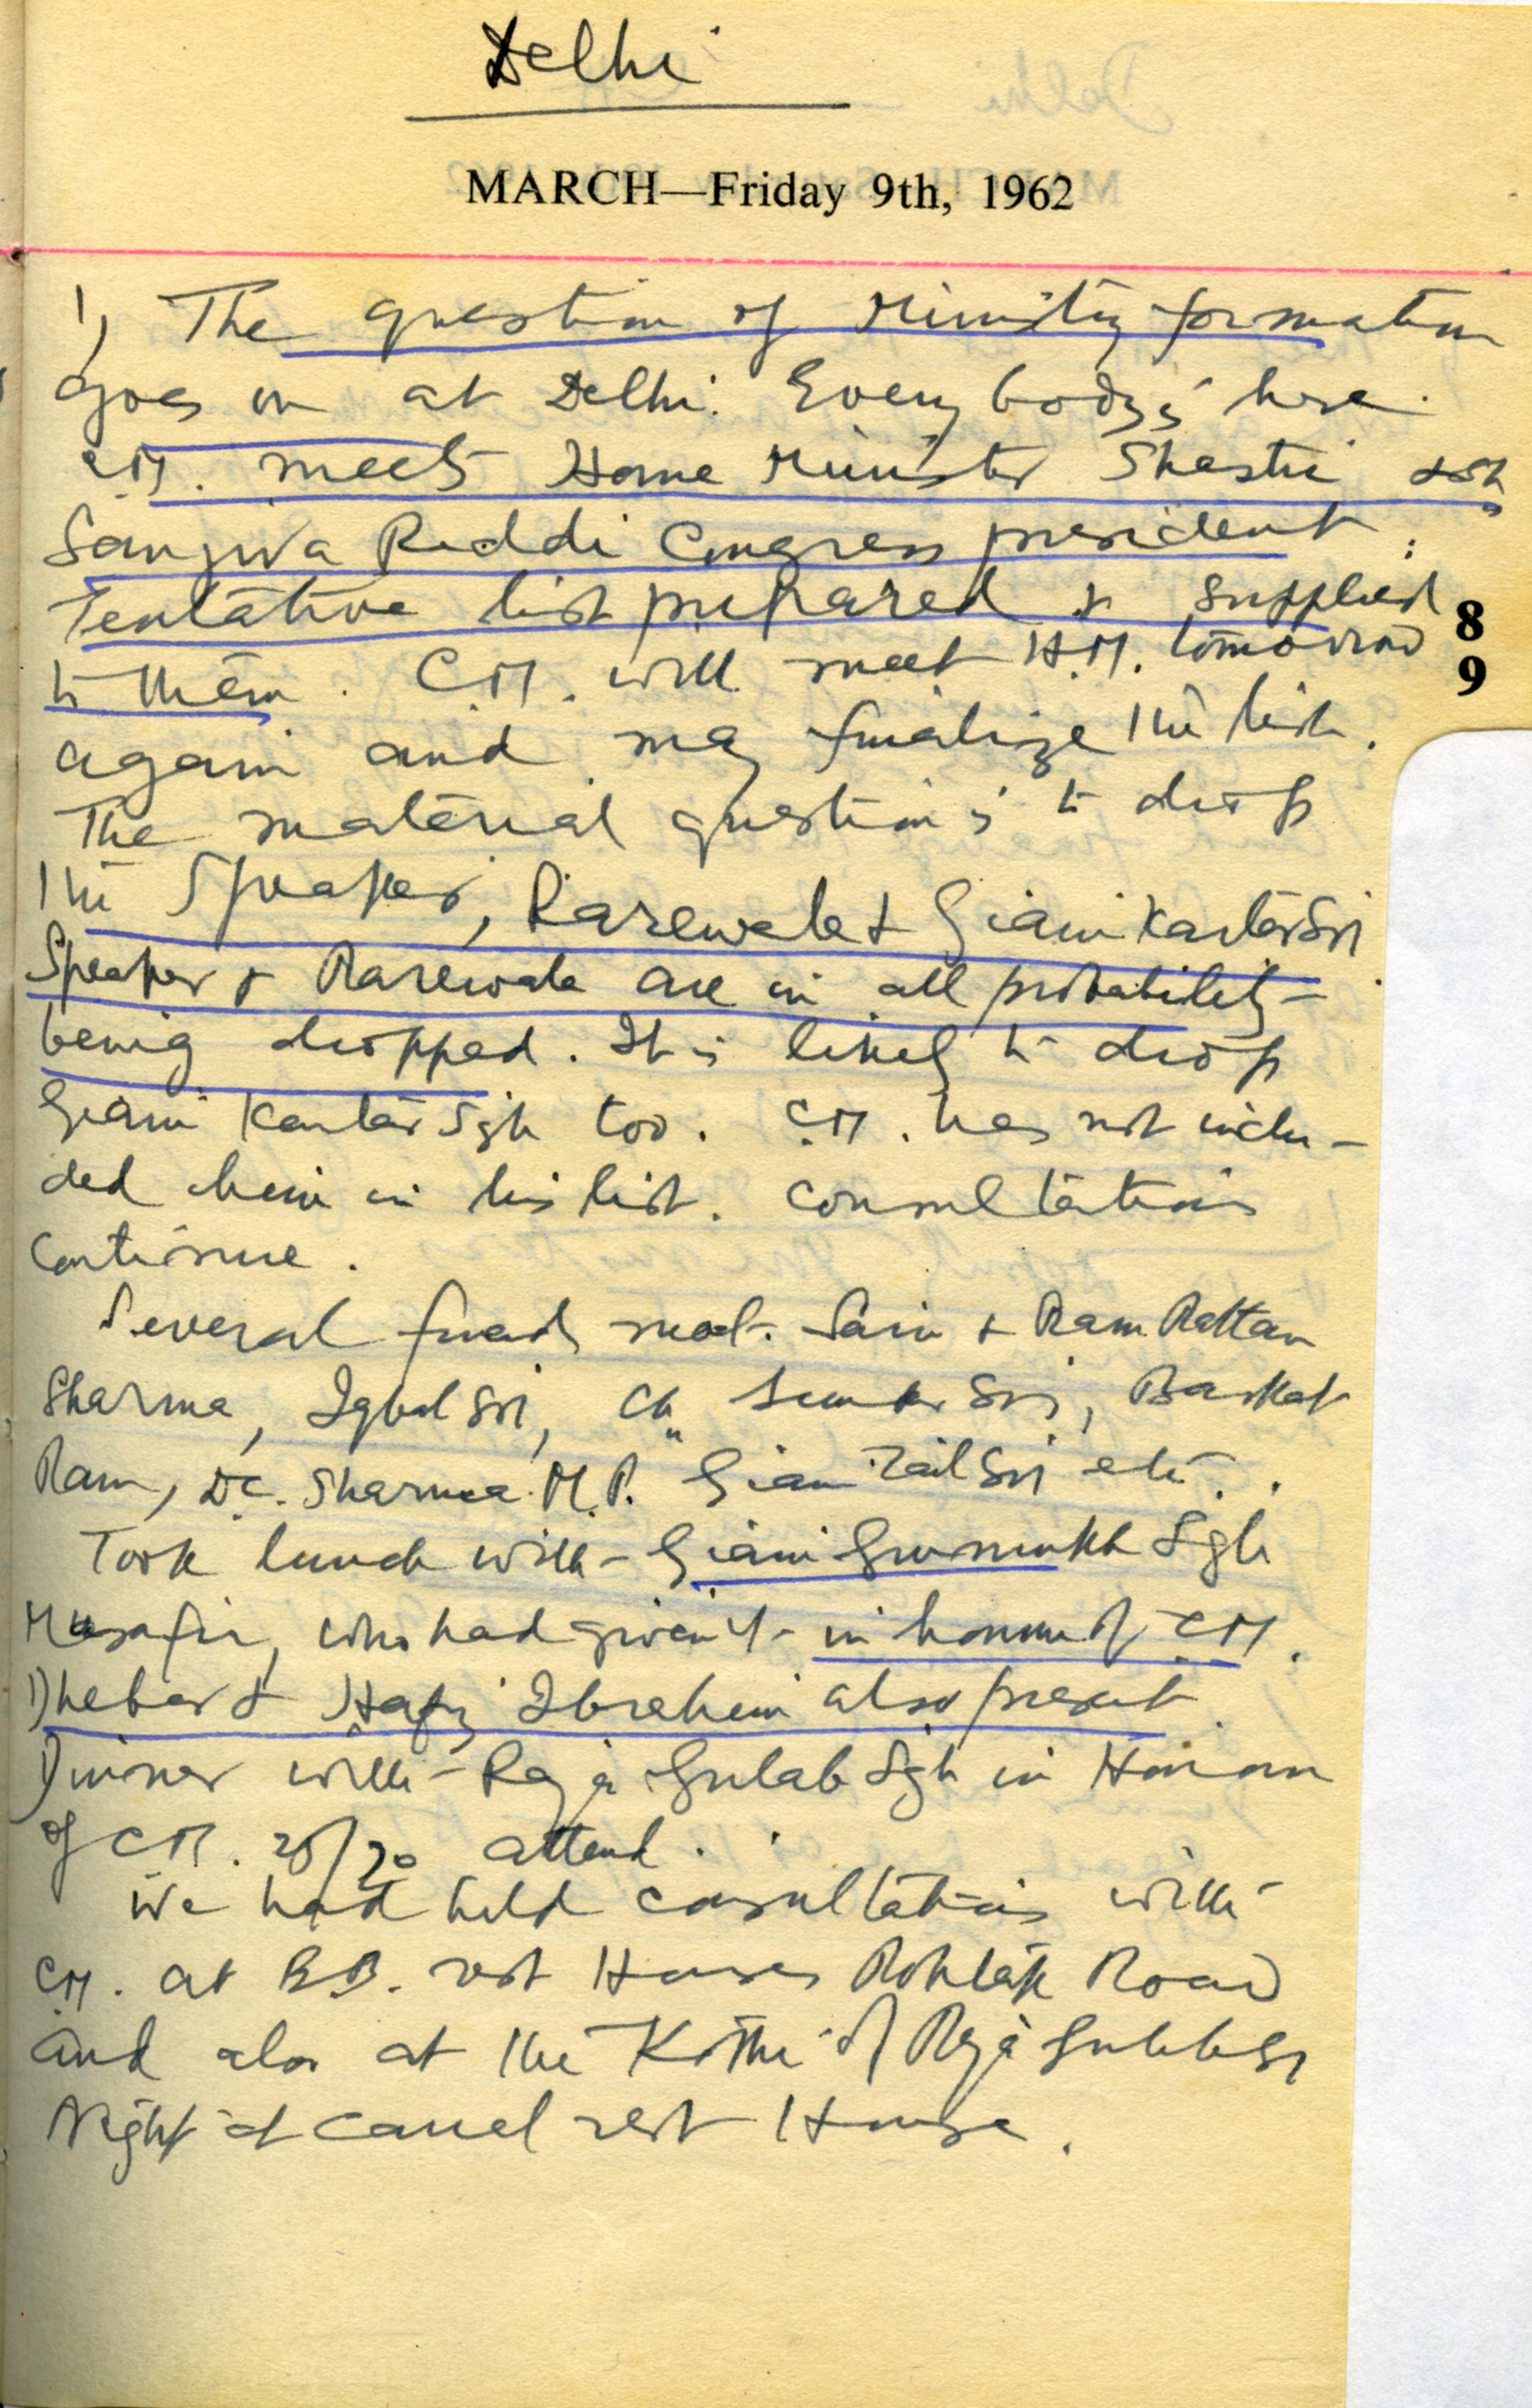 Delhi
MARCH—Friday 9th, 1962
1) The question of Ministry formation
goes on at Delhi. Everybody is here.
C.M. meets Home Minister Shastri & Sh.
Sanjiva Reddi Congress president.
Tentative list prepared & supplied
to them. C.M. will meet H.M. tomorrow
8
9
again and may finalize the list.
The material question is to drop
the Speaker, Rarewala & Giani Kartar Sri
Speaker & Rarewala are in all probability
being dropped. It is likely to drop
Giani Kartar Sgh too. C.M. has not inclu-
ded him in his list. Consultations
continue.
Several friends met. Sain & Ram Rattan
Sharma, Iqbal Sri, Ch. Sunder Sri, Barkat
Ram, D.C. Sharma M.P. Giani Zail Sri etc.
Took lunch with Giani Gurmukh Sgh
Musafir, who had given it in honour of C.M.
Dhebar & Hafiz Ibrahim also present.
Dinner with Raja Gulab Sgh in Honour
of C.M. 25/30 attend.
We had held consultations with
C.M. at B.B. rest House Rohtak Road
and also at the Kothi of Raja Gulab Sri
Night at Canal rest House.